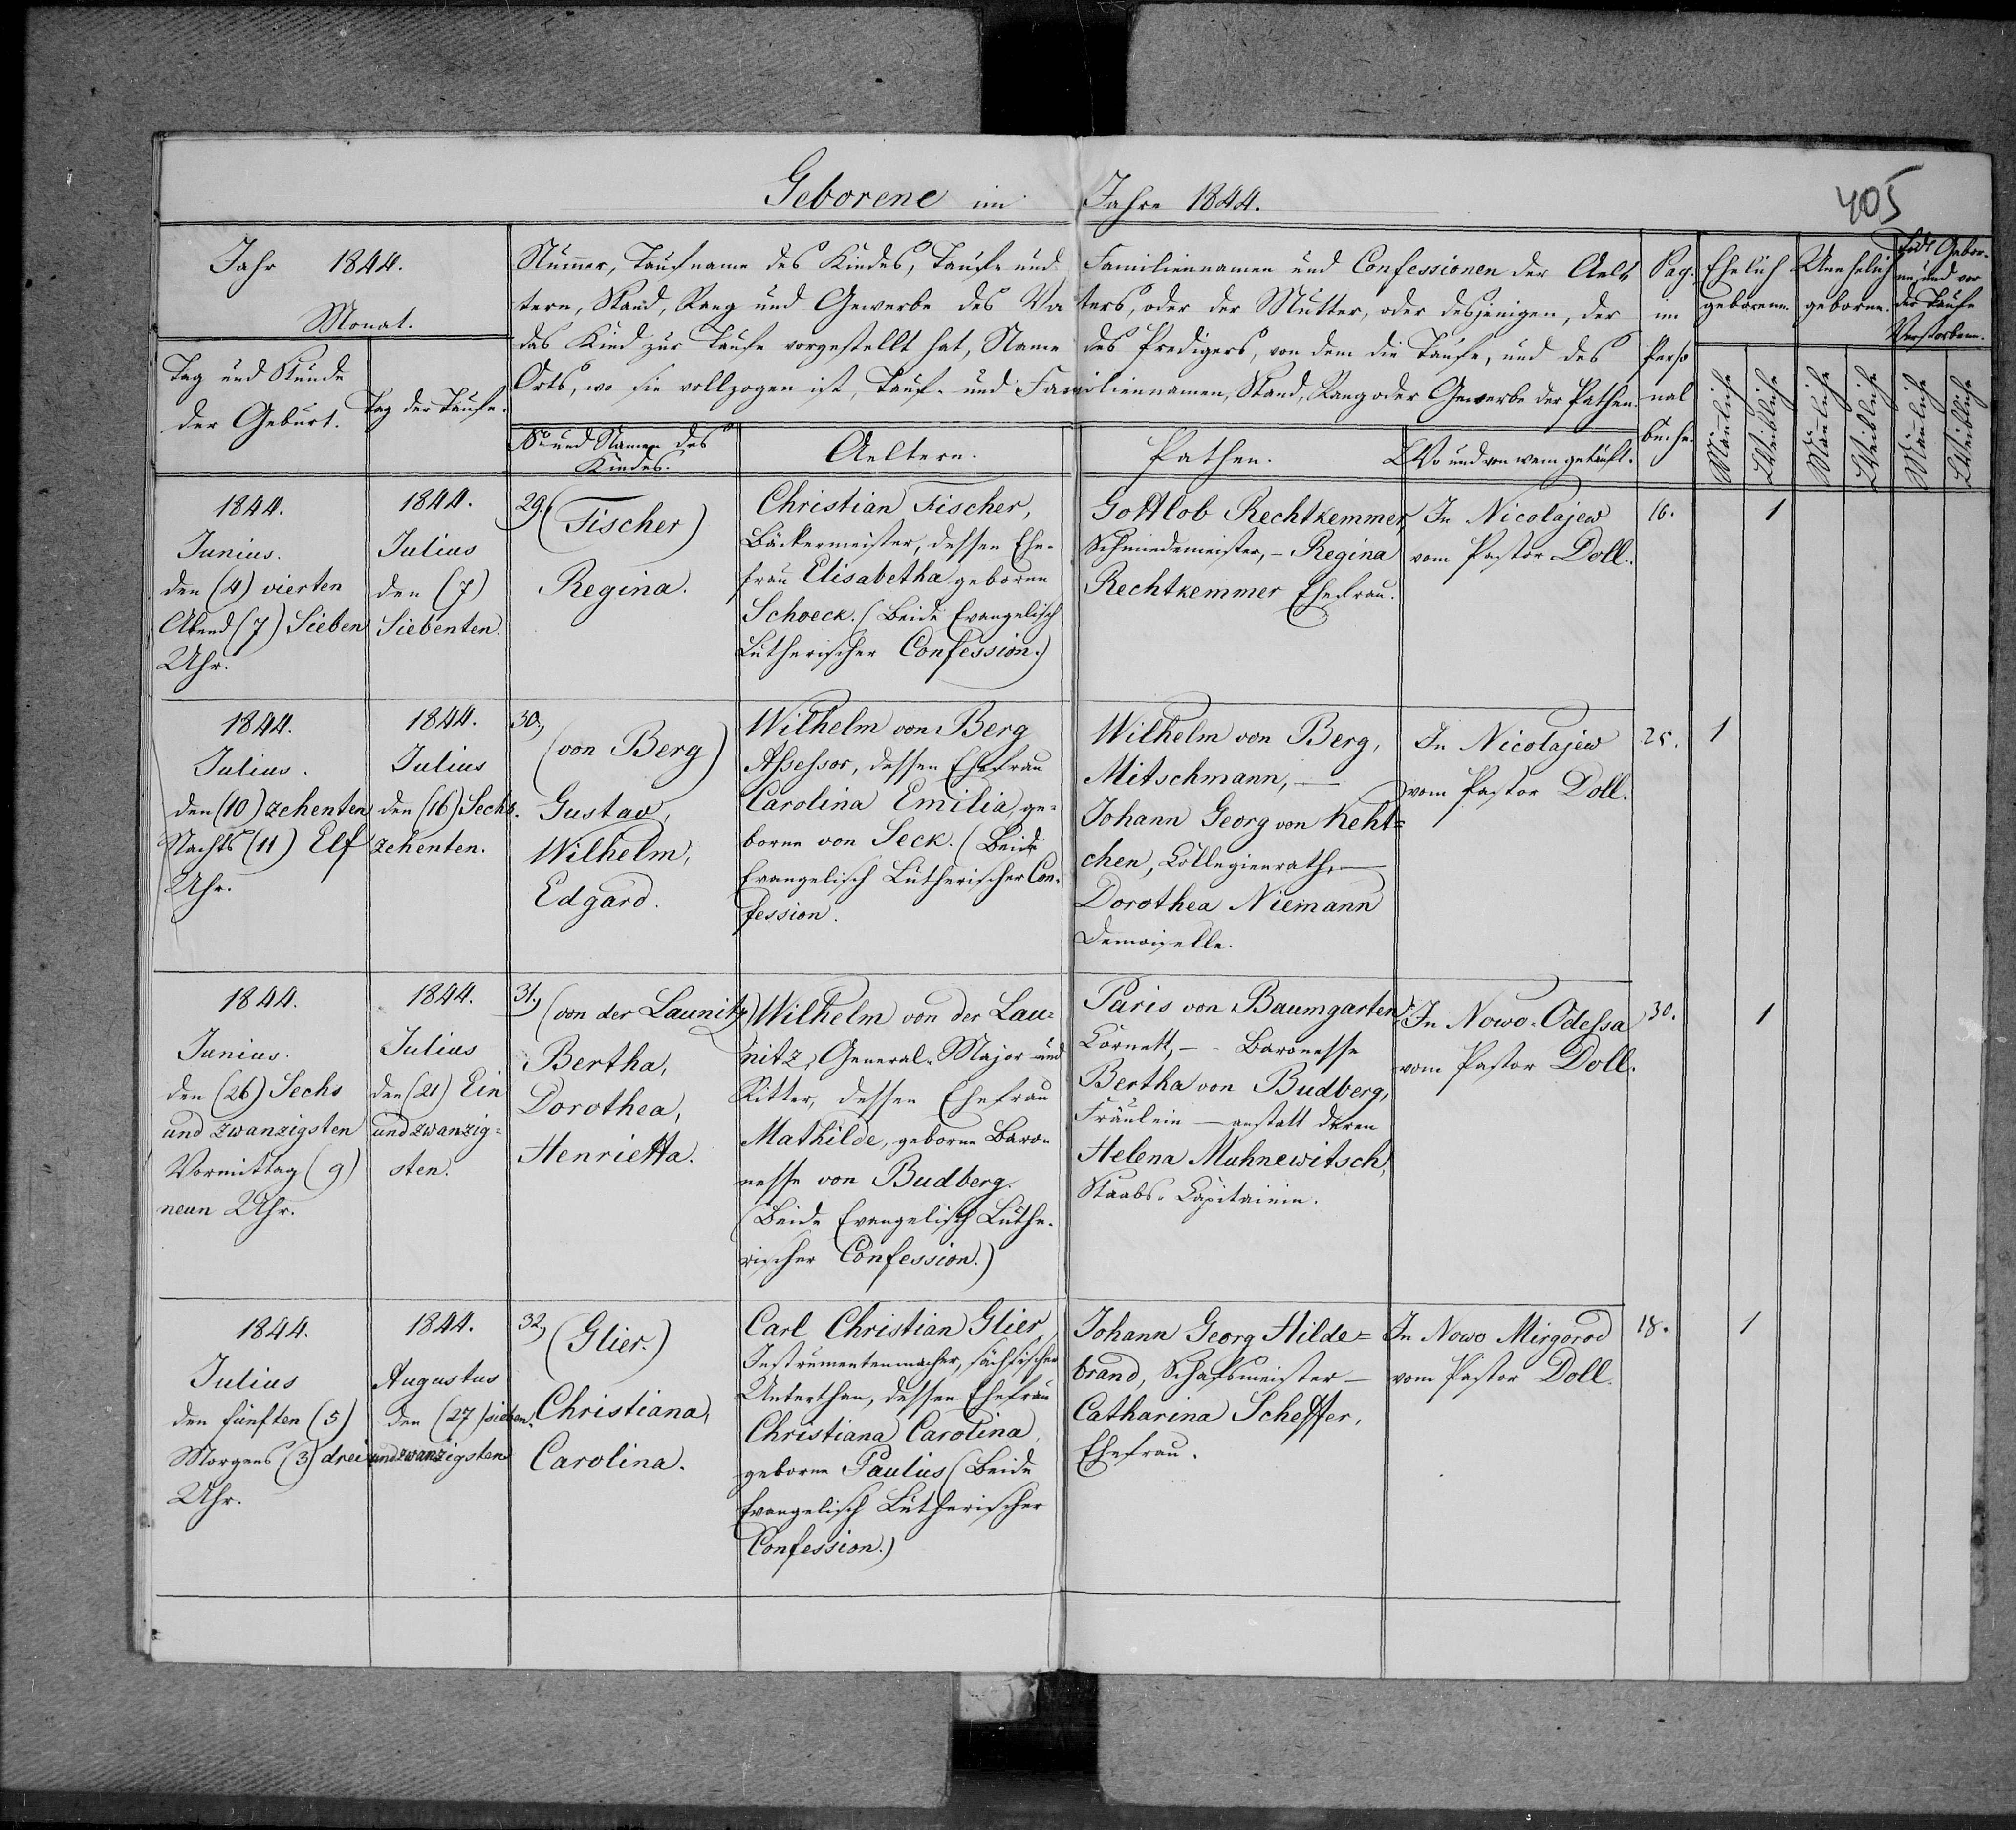 Geborene im Jahre 1844.
405
Jahr 1844.
Monat.
Tag und Stunde
der Geburt.
Tag der Taufe.
Numer, Taufname des Kindes, Taufe und Familiennamen und Confessionen der Ael-
tern, Stand, Rang und Gewerbe des Vaters, oder der Mutter, oder desjenigen, der
das Kind zur Taufe vorgestellt hat, Name des Predigers, von dem die Taufe, und des
Orts, wo sie vollzogen ist, Tauf- und Familiennamen, Stand, Rang oder Gewerbe der Pathen.
No und Namen des
Kindes.
Aeltern.
Pathen.
Wo und von wem getauft.
Pag.
im
Perso
nal
buche.
Ehelich
geborene.
Unehelich
geborne.
Todt Gebor-
ne und vor
der Taufe
Verstorbene.
Mänliche
Weibliche
Mänliche
Weibliche
Mänliche
Weibliche
1844.
Junius.
den (4) vierten
Abend (7) Sieben
Uhr.
1844.
Julius
den (7)
Siebenten.
29. (Fischer)
Regina.
Christian Fischer,
Bäckermeister, dessen Ehe-
frau Elisabetha geborne
Schoeck. (Beide Evangelisch
Lutherischer Confession.)
Gottlob Rechtkemmer,
Schmiedemeister, - Regina
Rechtkemmer Ehefrau.
In Nicolajew
vom Pastor Doll.
16.
1
1844.
Julius.
den (10) zehenten
Nachts (11) Elf
Uhr.
1844.
Julius
den (16) Sechs-
zehenten.
30.,
(von Berg)
Gustav,
Wilhelm,
Edgard.
Wilhelm von Berg
Assessor, dessen Ehefrau
Carolina Emilia, ge-
borne von Seck. (Beide
Evangelisch Lutherischer Con-
fession.
Wilhelm von Berg,
Mitschmann, —
Johann Georg von Keht=
chen, Collegienrath, —
Dorothea Niemann
Demoiselle.
In Nicolajew
vom Pastor Doll.
25.
1
1844.
Junius.
den (26) Sechs
und zwanzigsten
Vormittag (9)
neun Uhr.
1844.
Julius
den (21) Ein
und zwanzig=
sten.
31., (von der Launitz)
Bertha,
Dorothea,
Henrietta.
Wilhelm von der Lau=
nitz, General-Major und
Ritter, dessen Ehefrau
Mathilde, geborne Baro-
nesse von Budberg.
(Beide Evangelisch Luthe-
rischer Confession.)
Paris von Baumgarten,
Cornett, - - Baronesse
Bertha von Budberg,
Fräulein — anstatt deren
Helena Muhnewitsch,
Staabs-Capitainin.
In Nowo-Odessa
vom Pastor Doll.
30.
1
1844.
Julius
den fünften (5)
Morgens (3) drei
Uhr.
1844.
Augustus
den (27) sieben
undzwanzigsten
32., (Glier.)
Christiana,
Carolina.
Carl Christian Glier,
Instrumentenmacher, sächsischer
Unterthan, dessen Ehefrau
Christiana Carolina,
geborne Paulus (Beide
Evangelisch Lutherischer
Confession.)
Johann Georg Hilde=
brand, Schafsmeister —
Catharina Scheffer,
Ehefrau.
In Nowo Mirgorod
vom Pastor Doll.
18.
1